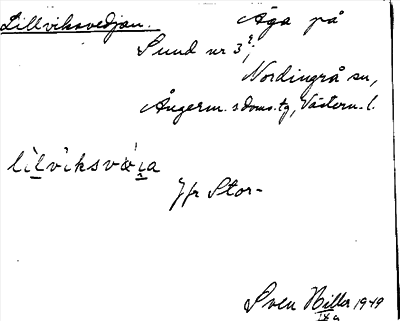 Lillviksvedjan. Äga på
Sund nr 3²,
Nordingrå sn,
Ångerm. s doms. tg, Västern. l.
lilviksvæia
Jfr Stor-
Sven Hiller 1949
IX a